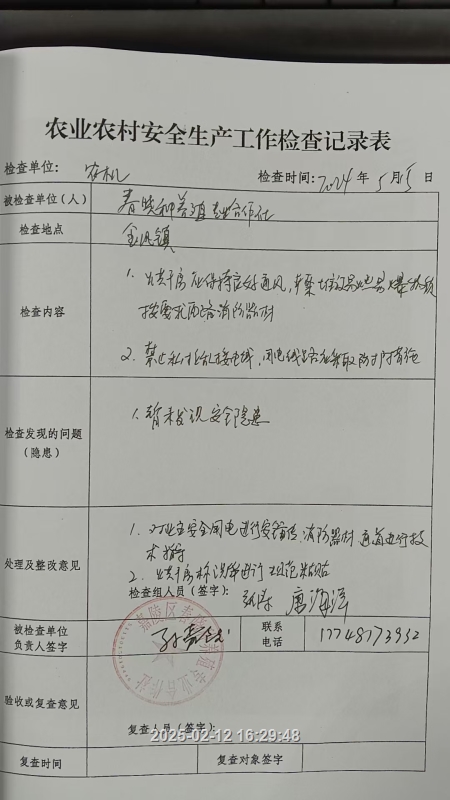 农业农村安全生产工作检查记录表
检查单位: 农机 检查时间: 2024 年 5 月 15 日
被检查单位(人) 春晓种养殖专业合作社
检查地点 金凤镇
检查内容
1. 烘干房应保持良好通风,
按要求配备消防器材
2. 禁止私拉乱接电线,用电线路应采取防护措施
检查发现的问题
(隐患)
1. 暂未发现安全隐患
处理及整改意见
1. 对业主安全用电进行安全宣传 消防器材 进行技
术指导
2. 烘干房标识牌进行规范粘贴
检查组人员(签字): 唐海洋
被检查单位
负责人签字
联系
电话
17748773932
嘉陵区 养殖专业合作社
验收或复查意见
复查人员(签字):
2025-02-12 16:29:48
复查时间 复查对象签字